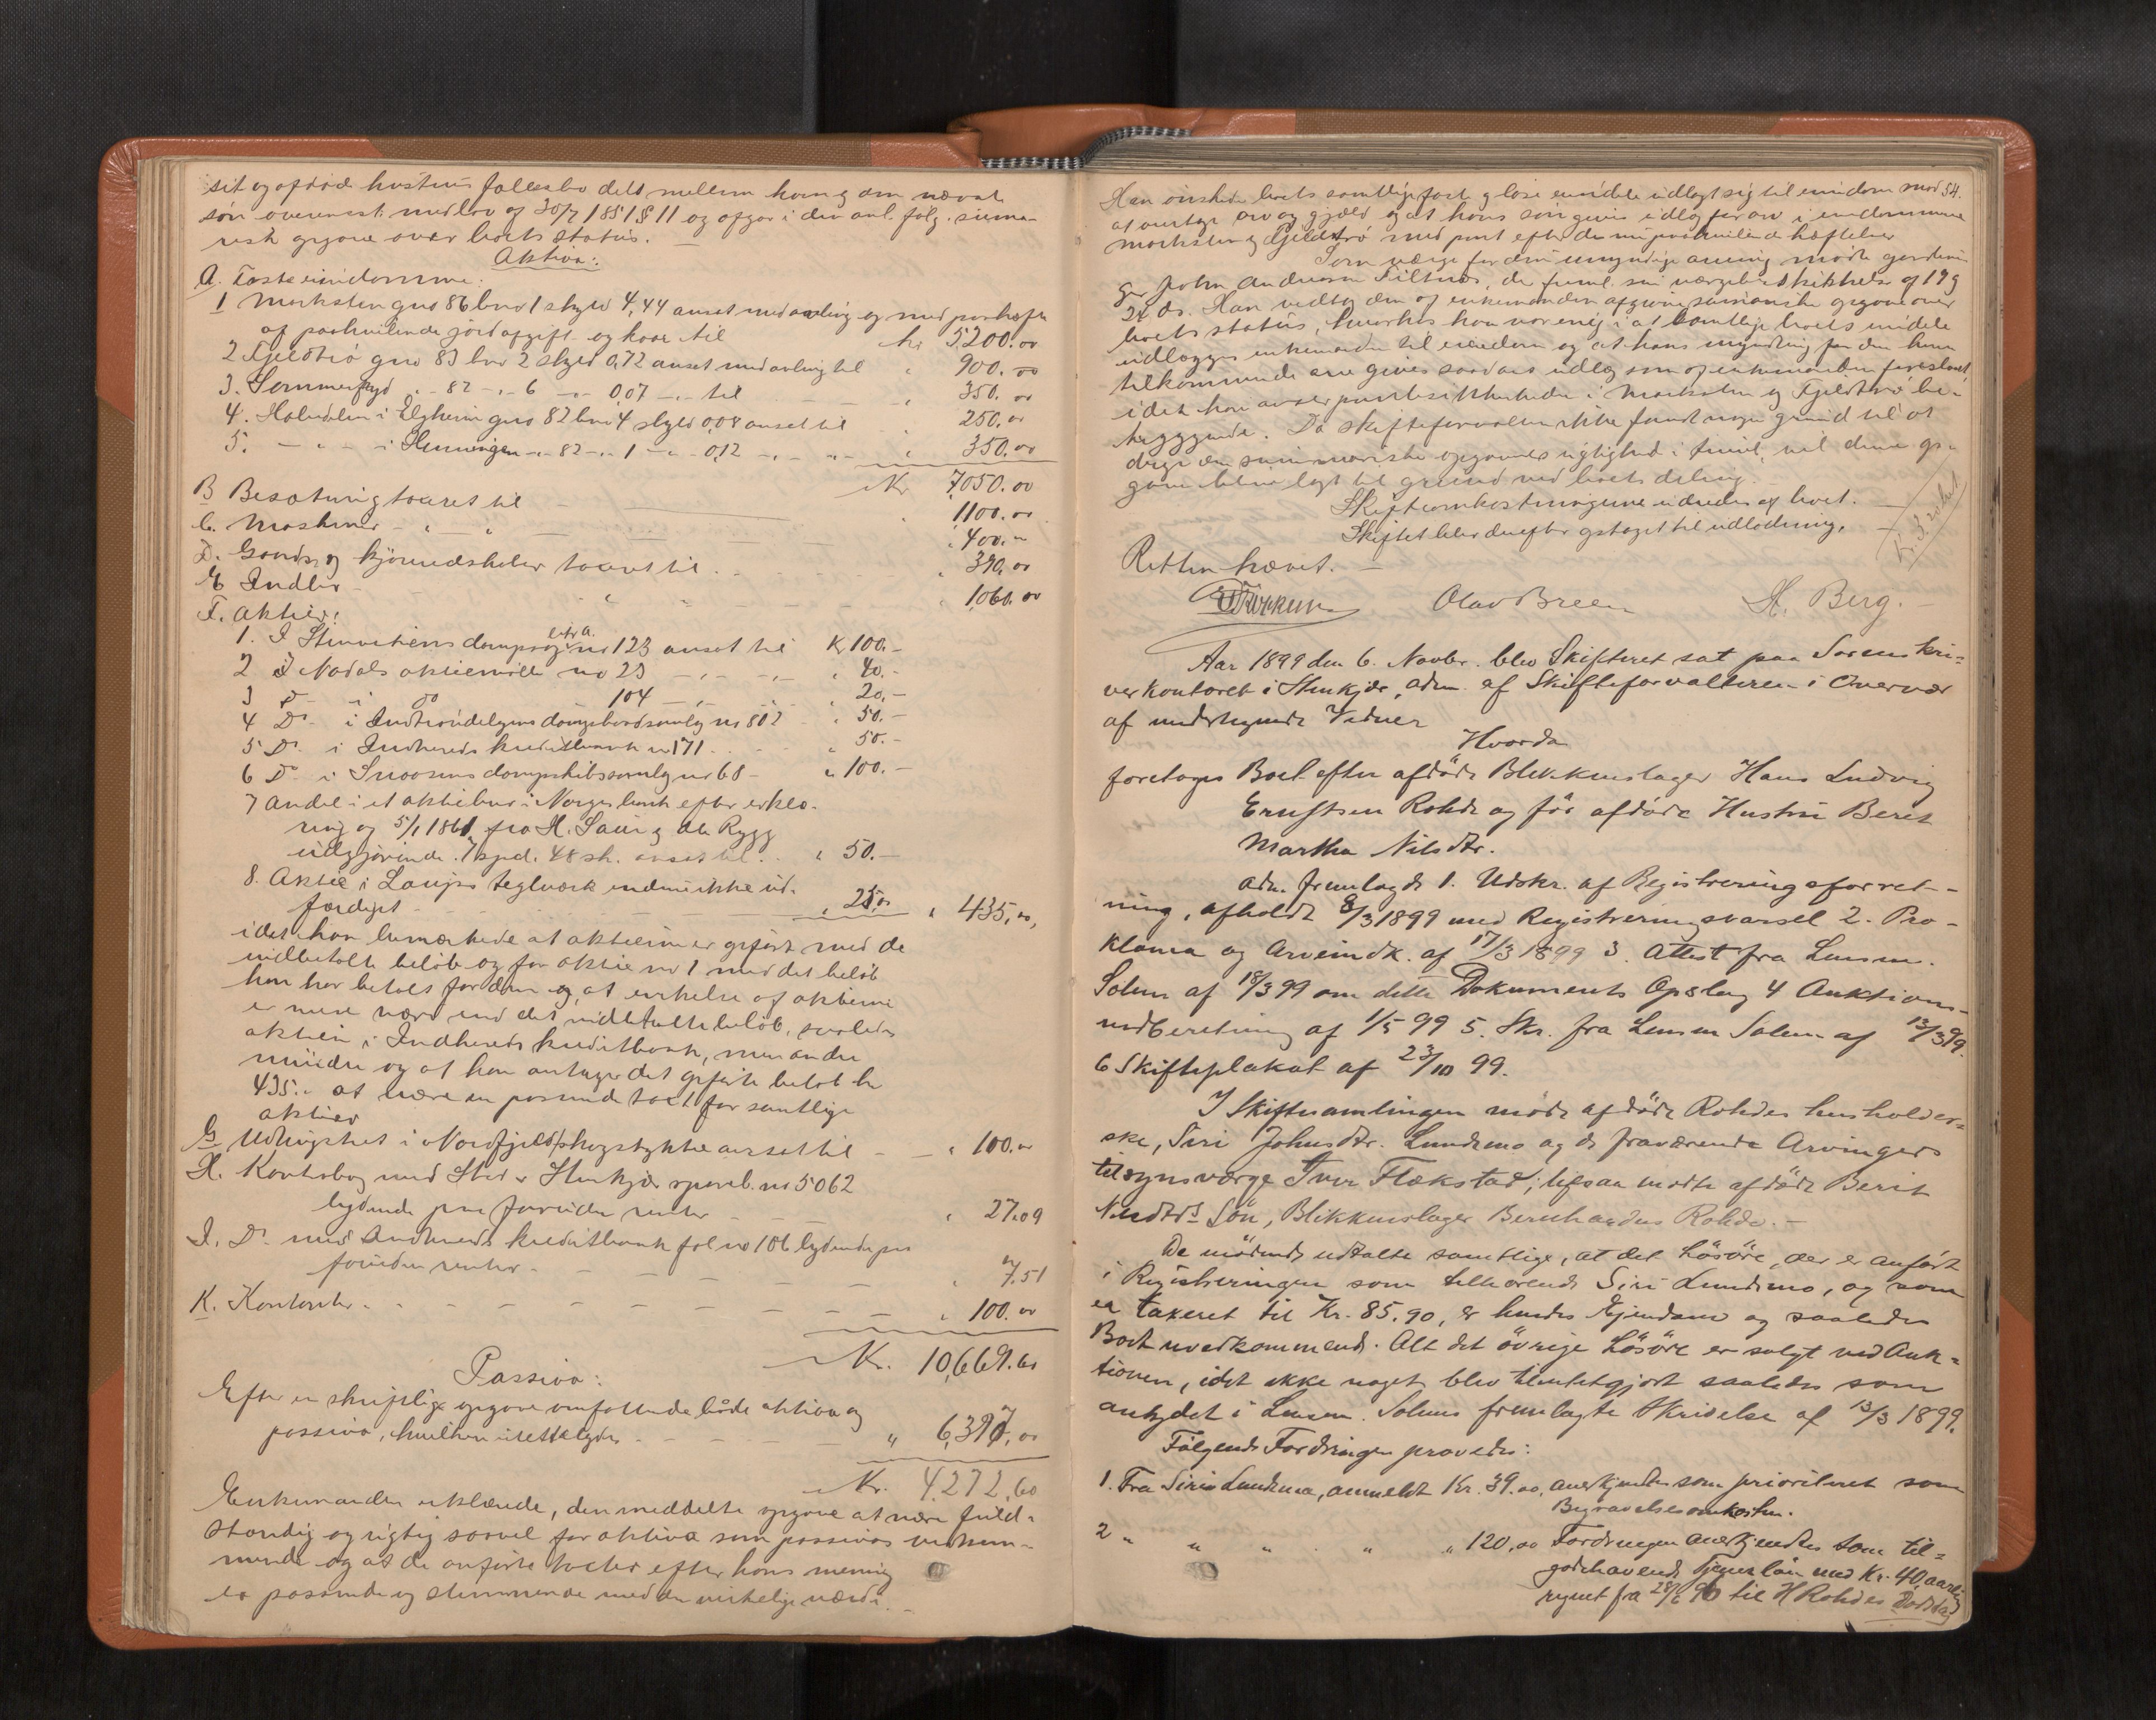 sit og afdøde hustrus fællesbo delt mellem ham og den nævnte
søn overensst. med lov af 30/7 1851 § 11 og afgav i den anl. følg. summa-
risk opgave over boets status.
Aktiva:
A. Faste eiendomme:
1 Marksten gno 86 bno 1 skyld 4,44 anset med avling og med
af paahvilende jordafgift og kaar til kr 5200.00
2 Fjeldtrø gno 83 bno 2 skyld 0,72 anset med avling til " 900.00
3. " 82 " 6 " 0,07 " til " 350.00
4. Halvdelen i gno 82 bno 4 skyld 0,08 anset til " 250.00
5. " " i " 82 " 1 " 0,12 " " " 350.00
Kr 7050.00
B Besætning taxeret til " 1100.00
C. Maskiner " " " 400.00
D. Gaards og kjøreredskaber taxeret til " 390.00
E Indbo " " " 1060.00
F. Aktier:
1. I dampsag no 123 anset til Kr 100.-
2 I aktiemølle no 23 " " " 40.-
3 Do i do 104 " " 20,-
4 Do i dampskibsselsk no 802 " 50.-
5 Do i Indhereds kreditbank no 171 " 50.-
6 Do i Snaasens dampskibsselsk no 68 - " 100.-
7 Andel i et aktiebrev i Norges bank efter erklæ-
ring af 5/1 1861 fra H. og Ole Rygg
udgjørende 7 spd. 48 sk. anset til " 50.-
8. Aktie i teglværk endnu ikke ud-
færdiget " 25,00 " 435,00,
idet han bemærkede at aktierne er opført med de
indbetalte beløb og for aktie no 1 med det beløb
han har betalt for den og at enkelte af aktierne
er mere værd end det indbetalte beløb, saaledes
aktien i Indhereds kreditbank, men andre
mindre og at han antager det opførte beløb kr
435.- at være en passende taxt for samtlige
aktier
G Udhugstret i anset til " 100.00
H. Kontrabog med Stod & Stenkjær spareb. no 5062
lydende paa foruden renter " 27.09
I. Do med Indhereds kreditbank fol no 106 lydende paa
foruden renter - " 7.51
K. Kontanter " 100.00
Kr. 10,669.60
Passiva:
Efter en skriftlig opgave omfattende både aktiva og
passiva, hvilken " 6,397,00
Kr. 4,272,60
Enkemanden erklærede, den meddelte opgave at være fuld-
stændig og rigtig saavel for aktiva som passivas vedkom-
mende og at de anførte taxter efter hans mening
er passende og stemmende med den virkelige værdi.
54.
Han ønskede boets samtlige faste og løse eiendele udlagt sig til eiendom mod
at overtage arv og gjæld og at hans søn gives udlæg for arv i eiendommene
Marksten og Fjeldtrø med pant efter de nu paahvilende hæftelser
Som værge for den umyndige arving mødte gaardbru-
ger John Andreas Tiltnes, der freml. sin værgebeskikkelse af 19 g
24 ds. Han vedtog den af enkemanden afgivne summariske opgave over
boets status, hvorhos han var enig i at samtlige boets eiendele
udlægges enkemanden til eiendom og at hans myndling for den ham
tilkommende arv gives saadant udlæg som af enkemanden foreslaaet,
idet han anser pantesikkerheden i Marksten og Fjeldtrø be-
tryggende. Da skifteforvalteren ikke fandt nogen grund til at
drage den summariske opgaves rigtighed i tvivl, vil denne op-
gave blive lagt til grund ved boets deling.
Skifteomkostningerne udredes af boet.
Skiftet blev derefter optaget til udlodning.
Retten hævet.
Olav Breen H. Berg.
Aar 1899 den 6. Novbr. blev Skifteret sat paa Sorenskri=
verkontoret i Stenkjær, adm. af Skifteforvalteren i Overvær
af undertegnede Vidner
Hvorda
foretoges Boet efter afdøde Blikkenslager Hans Ludvig
Ernstsen Rohde og før afdøde Hustru Beret
Martha Nilsdtr.
Adm. fremlagde 1. Udskr. af Registreringsforret-
ning, afholdt 8/3 1899 med Registreringsvarsel 2. Pro-
klama og Arveindk. af 17/3 1899 3. Attest fra Lensm.
Solem af 18/3 99 om dette Dokuments Opslag 4 Auktions-
indberetning af 1/5 99 5. Skr. fra Lensm Solem af 13/3 99.
6 Skifteplakat af 23/10 99.
I Skiftesamlingen mødte afdøde Rohdes husholder=
ske, Siri Johnsdtr. Lundemo og de fraværende Arvingers
tilsynsværge Iver Flækstad; ligesaa mødte afdøde Berit
Nilsdtrs Søn, Blikkenslager Bernhardus Rohde. -
De mødende udtalte samtlige, at det Løsøre, der er anført
i Registreringen som tilhørende Siri Lundemo, og som
er taxeret til Kr. 85,90, er hendes Ejendom og saaledes
Boet uvedkommende. Alt det øvrige Løsøre er solgt ved Auk=
tionen, idet ikke noget blev tilintetgjort saaledes som
antydet i Lensm. Solems fremlagte Skrivelse af 13/3 1899.
Følgende Fordringer prøvedes:
1. Fra Siri Lundemo, anmeldt Kr. 39.00, anerkjendtes som prioriteret som
Begravelsesomkostn.
2 " " " " " 120,00 Fordringen anerkjendtes som til=
godehavende Tjenerløn med Kr. 40 aarlig
regnet fra 28/6 96 til H Rohdes Dødsdag